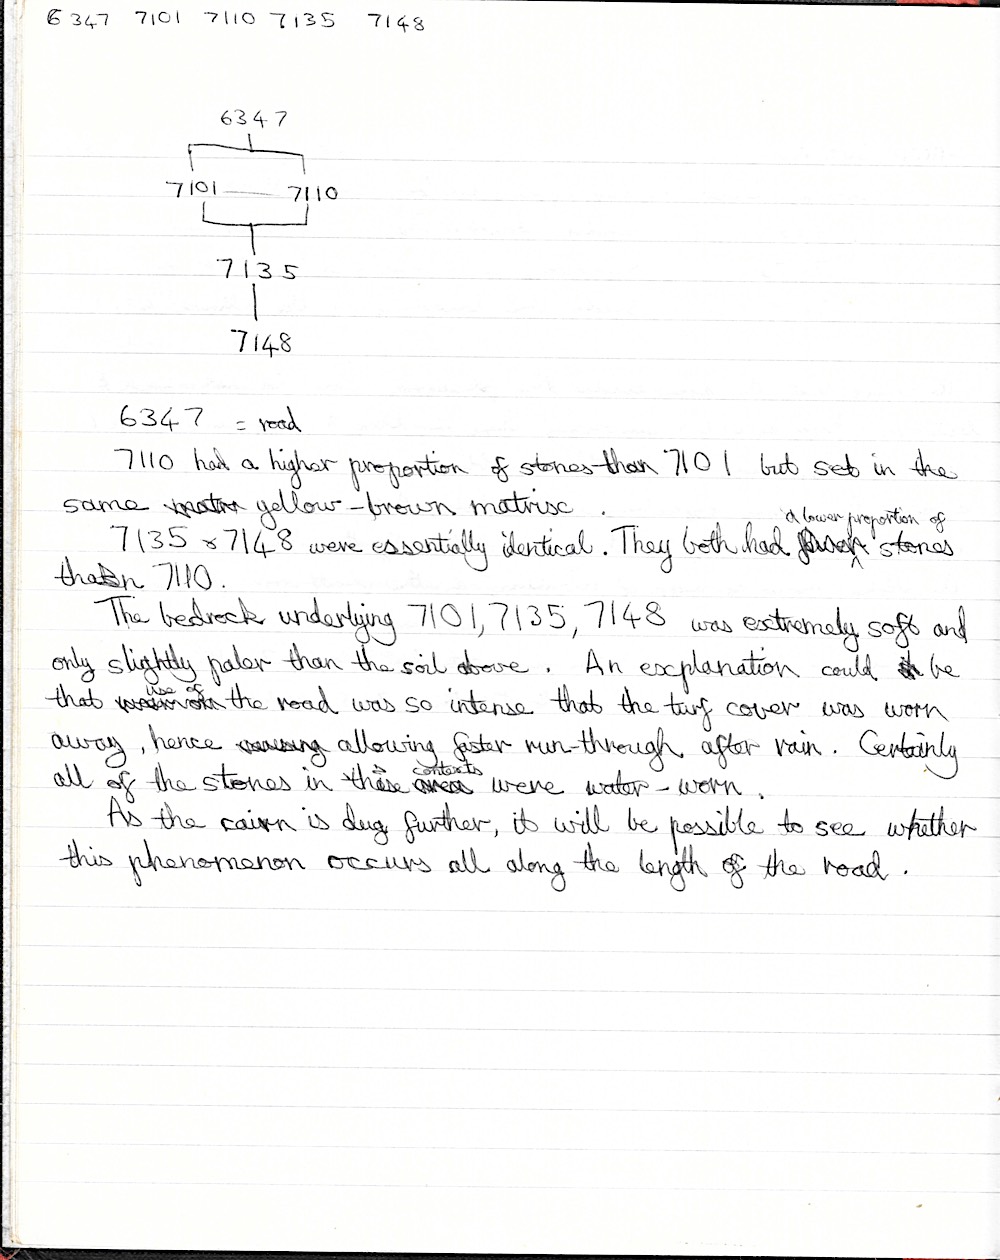 6347 7101 7110 7135 7148
6347
7101 7110
7135
7148
6347 = road
7110 had a higher proportion of stones than 7101 but set in the
same yellow-brown matrix .
a lower proportion of
7135 & 7148 were essentially identical. They both had stones
than 7110.
The bedrock underlying 7101, 7135, 7148 was extremely soft and
only slightly paler than the soil above. An explanation could be
use of
that the road was so intense that the turf cover was worn
away, hence allowing faster run-through after rain. Certainly
contexts
all of the stones in these were water-worn.
As the cairn is dug further, it will be possible to see whether
this phenomenon occurs all along the length of the road.